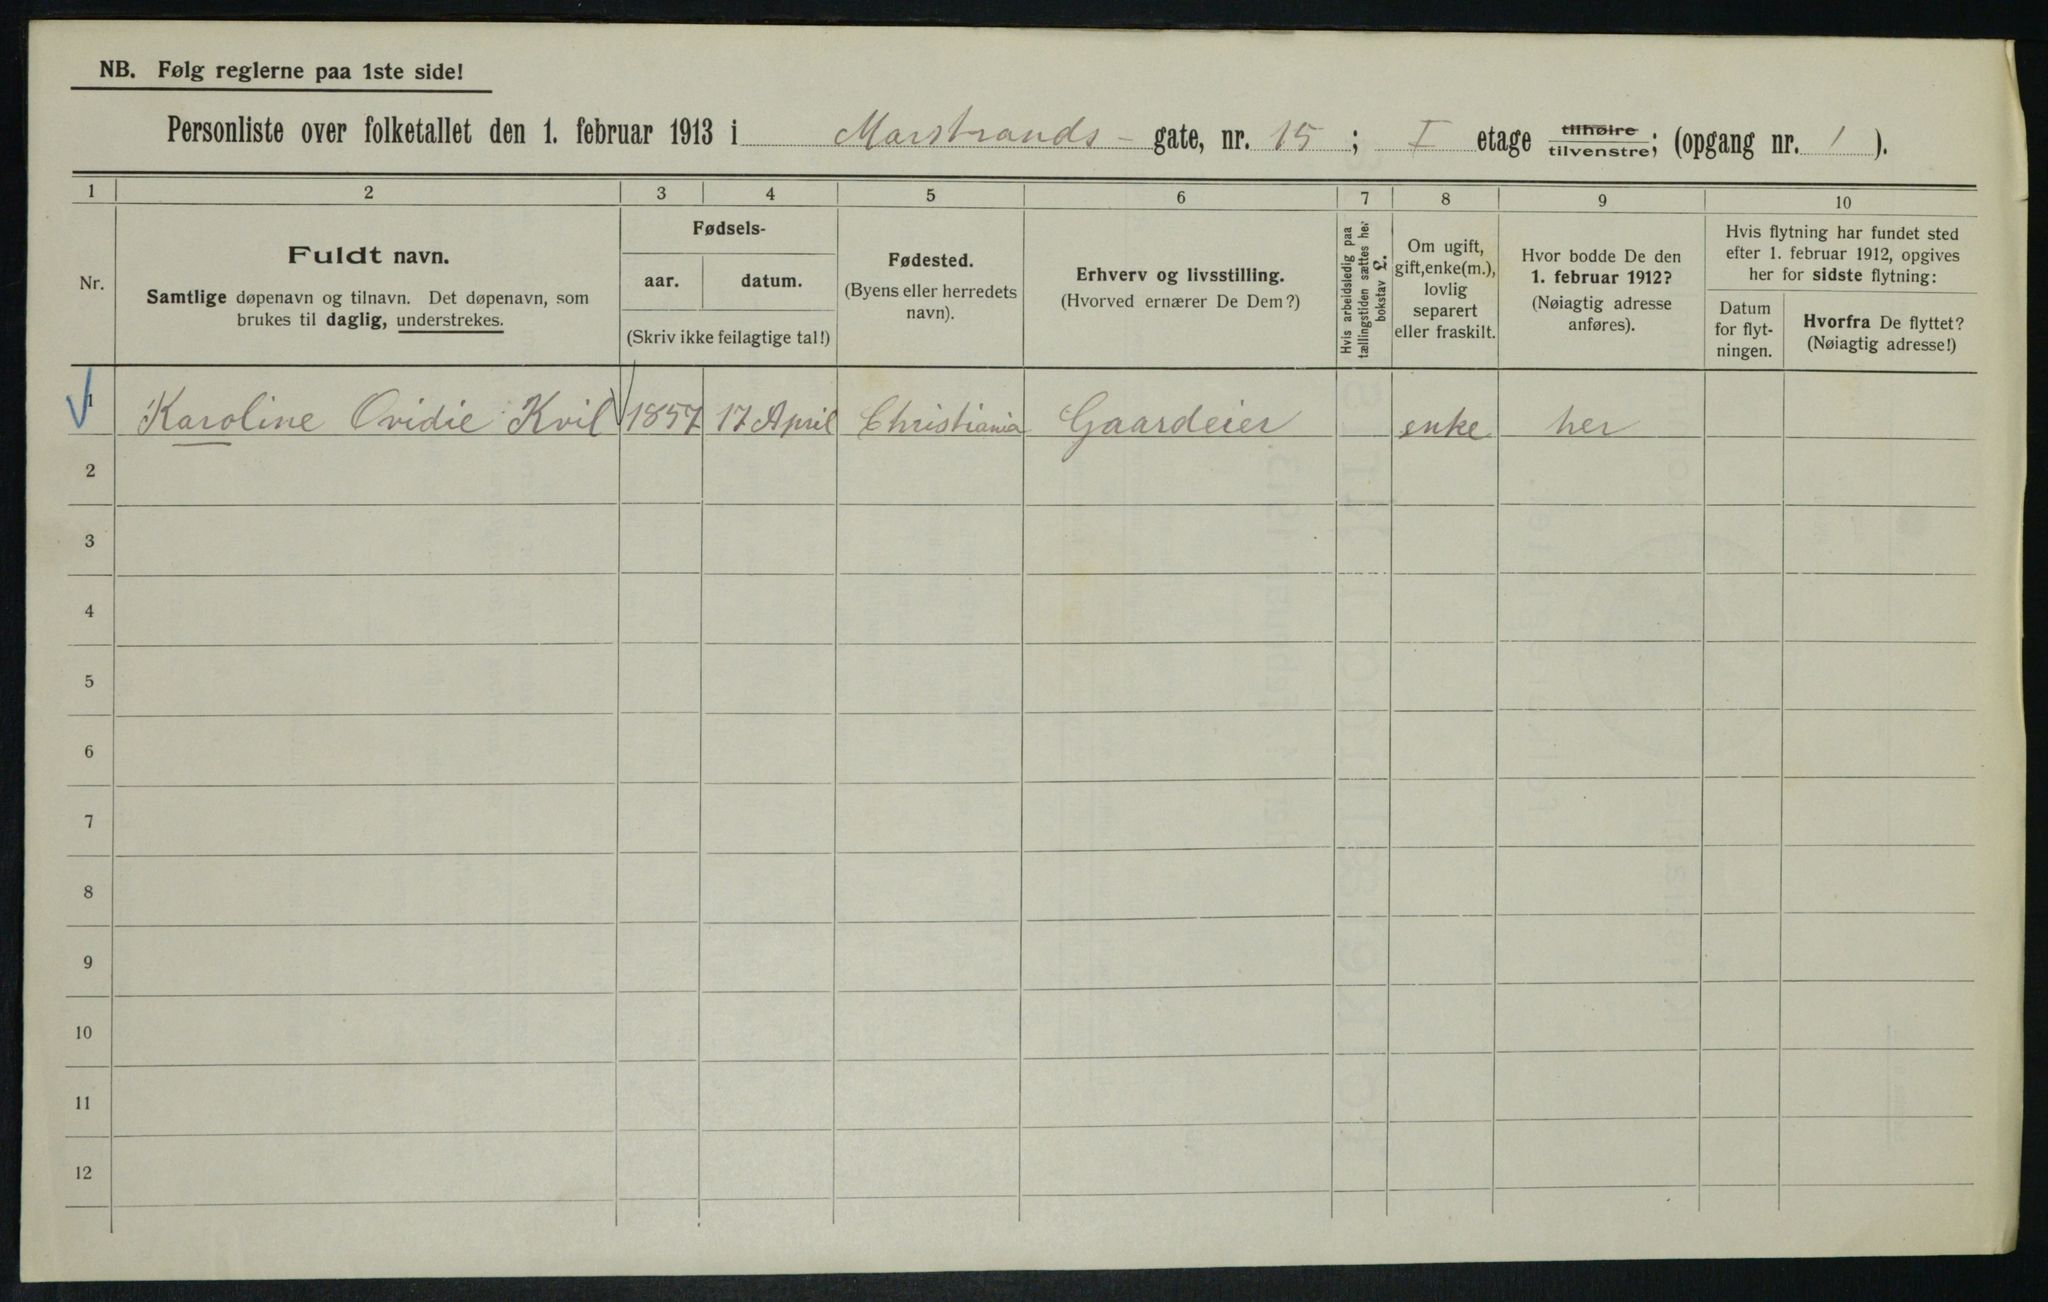 NB. Følg reglerne paa 1ste side!
Personliste over folketallet den 1. februar 1913 i Marstrands- gate, nr. 15; I etage tilhøire tilvenstre; (opgang nr. 1).
1 2 3 4 5 6 7 8 9 10
Nr.
Fuldt navn.
Samtlige døpenavn og tilnavn. Det døpenavn, som
brukes til daglig, understrekes.
Fødsels-
aar. datum.
(Skriv ikke feilagtige tal!)
Fødested.
(Byens eller herredets
navn).
Erhverv og livsstilling.
(Hvorved ernærer De Dem?)
Hvis arbeidsledig paa
tællingstiden sættes her
bokstav L.
Om ugift,
gift, enke(m.),
lovlig
separert
eller fraskilt.
Hvor bodde De den
1. februar 1912?
(Nøiagtig adresse
anføres).
Hvis flytning har fundet sted
efter 1. februar 1912, opgives
her for sidste flytning:
Datum
for flyt-
ningen.
Hvorfra De flyttet?
(Nøiagtig adresse!)
1 Karoline Ovidie Kvil 1857 17 April Christiania Gaardeier enke her
2
3
4
5
6
7
8
9
10
11
12